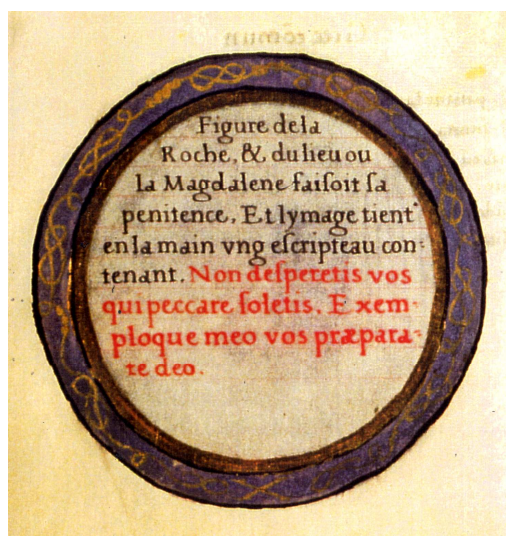 Figure dela
Roche, & dulieu ou
la Magdalene faiſoit ſa
penitence, Et lymage tient
en la main vng eſcripteau con-
tenant. Non deſperetis vos
qui peccare ſoletis, Exem-
ploque meo vos præpara-
te deo.